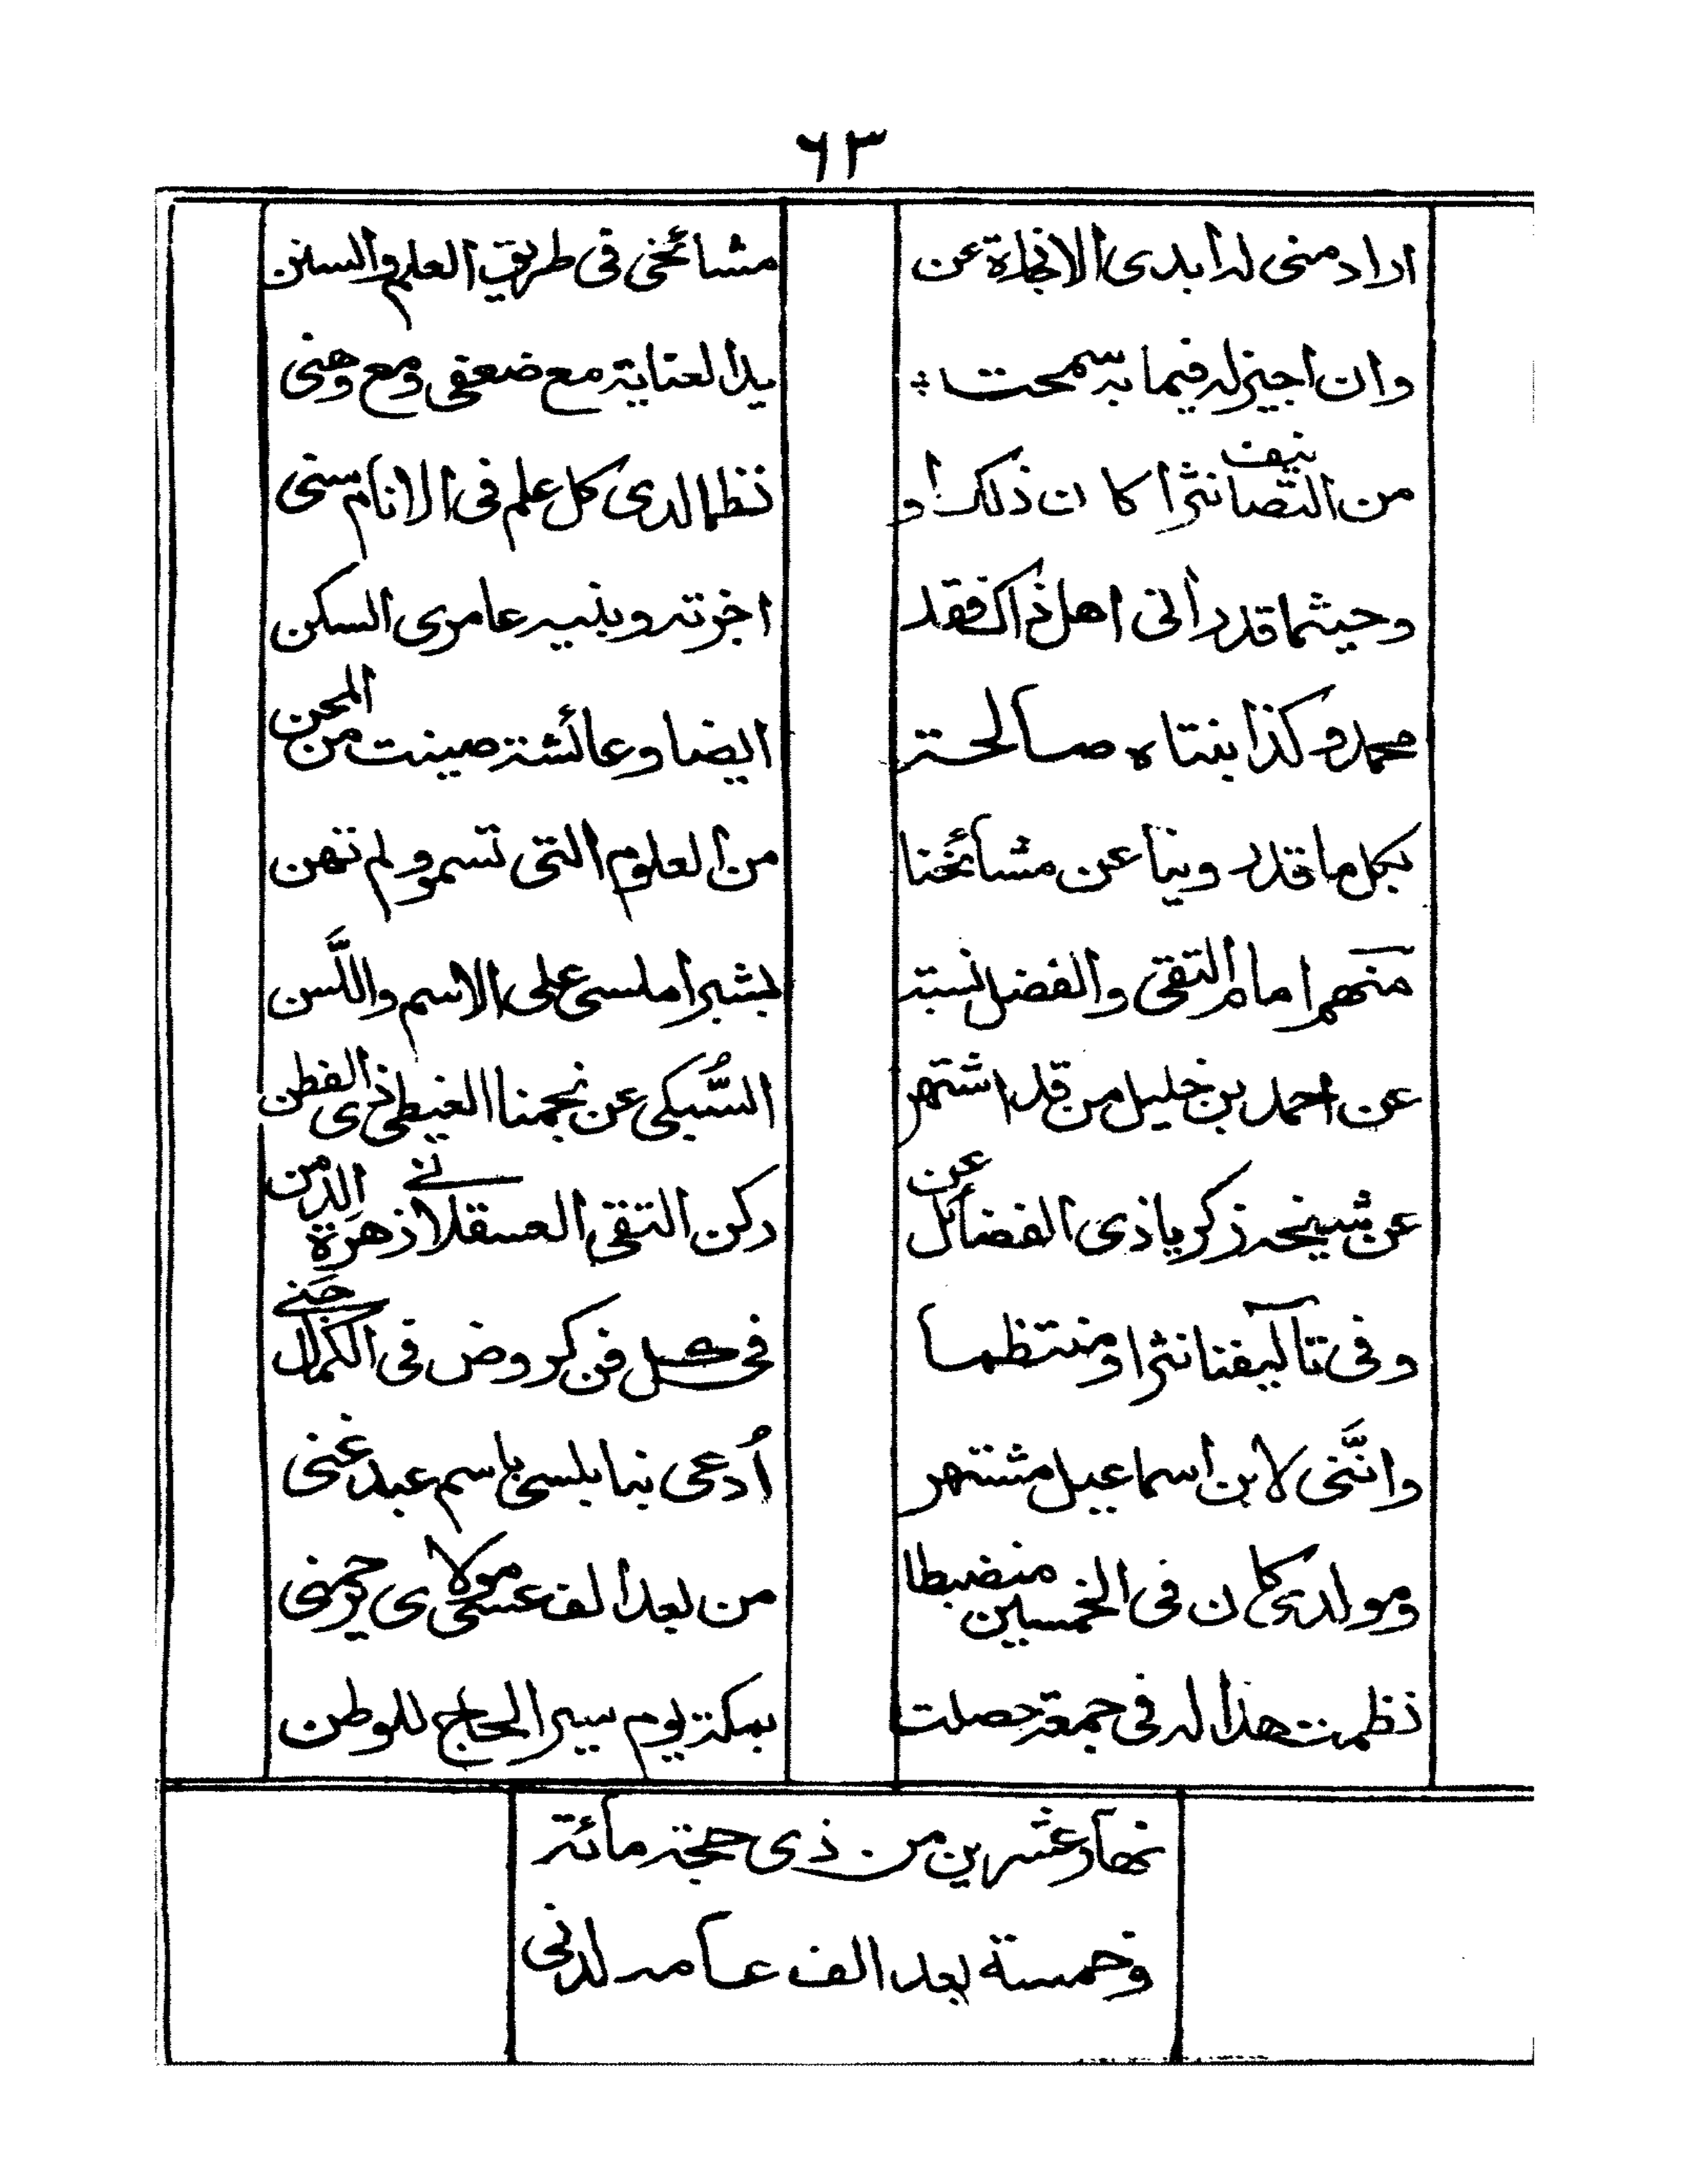 ٦٣
اراد منى له ابدى الاجازة عن مشائخى فى طريق العلم والسنن
وان اجيز له فيما به سمحت يد العناية مع ضعفى ومع وهنى
من التصانيف نثرا كان ذلك او نظما لدى كل علم فى الانام سنى
وحيثما قد رانى اهل ذاك فقد اجزته وبنيه عامرى السكن
محمد وكذا بنتاه صالحة ايضا وعائشة صينت من المحن
بكل ما قد روينا عن مشائخنا من العلوم التى تسمو ولم تهن
منهم امام التقى والفضل نسبته بشبراملسى على الاسم واللَّسن
عن احمد بن خليل من قد اشتهر السُّبكى عن نجمنا الغيطى ذى الفطن
عن شيخه زكريا ذى الفضائل عن ركن التقى العسقلانى زهرة الدمن
وفى تآليفنا نثرا ومنتظما فى كل فن كروض فى الكمال جَنى
وانَّنى لابن اسماعيل مشتهر اُدعى بنابلسى باسم عبد غنى
ومولدى كان فى الخمسين منضبطا من بعد الف عسى مولاى يرحمنى
نظمت هذا له فى جمعة حصلت بمكة يوم سير الحاج للوطن
نهار عشرين من ذى حجة مائة
وخمسة بعد الف عامه لدنى